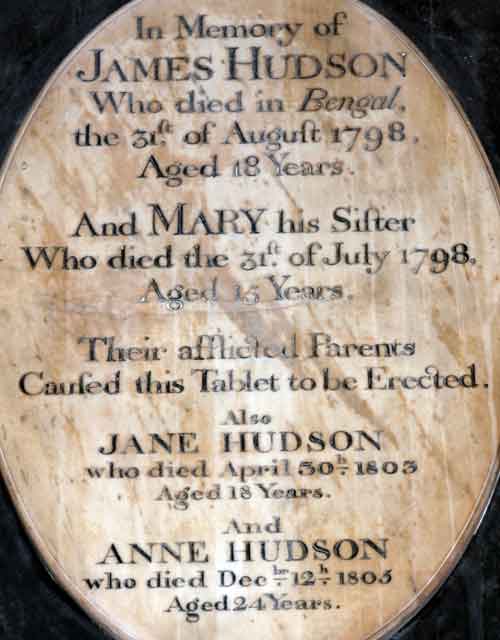 In Memory of
JAMES HUDSON
Who died in Bengal,
the 31ſt. of Auguſt 1798,
Aged 18 Years.
And MARY his Siſter
Who died the 31ſt. of July 1798,
Aged 15 Years.
Their afflicted Parents
Cauſed this Tablet to be Erected.
Also
JANE HUDSON
who died April 30h. 1803
Aged 18 Years.
And
ANNE HUDSON
who died Decbr. 12h. 1805
Aged 24 Years.